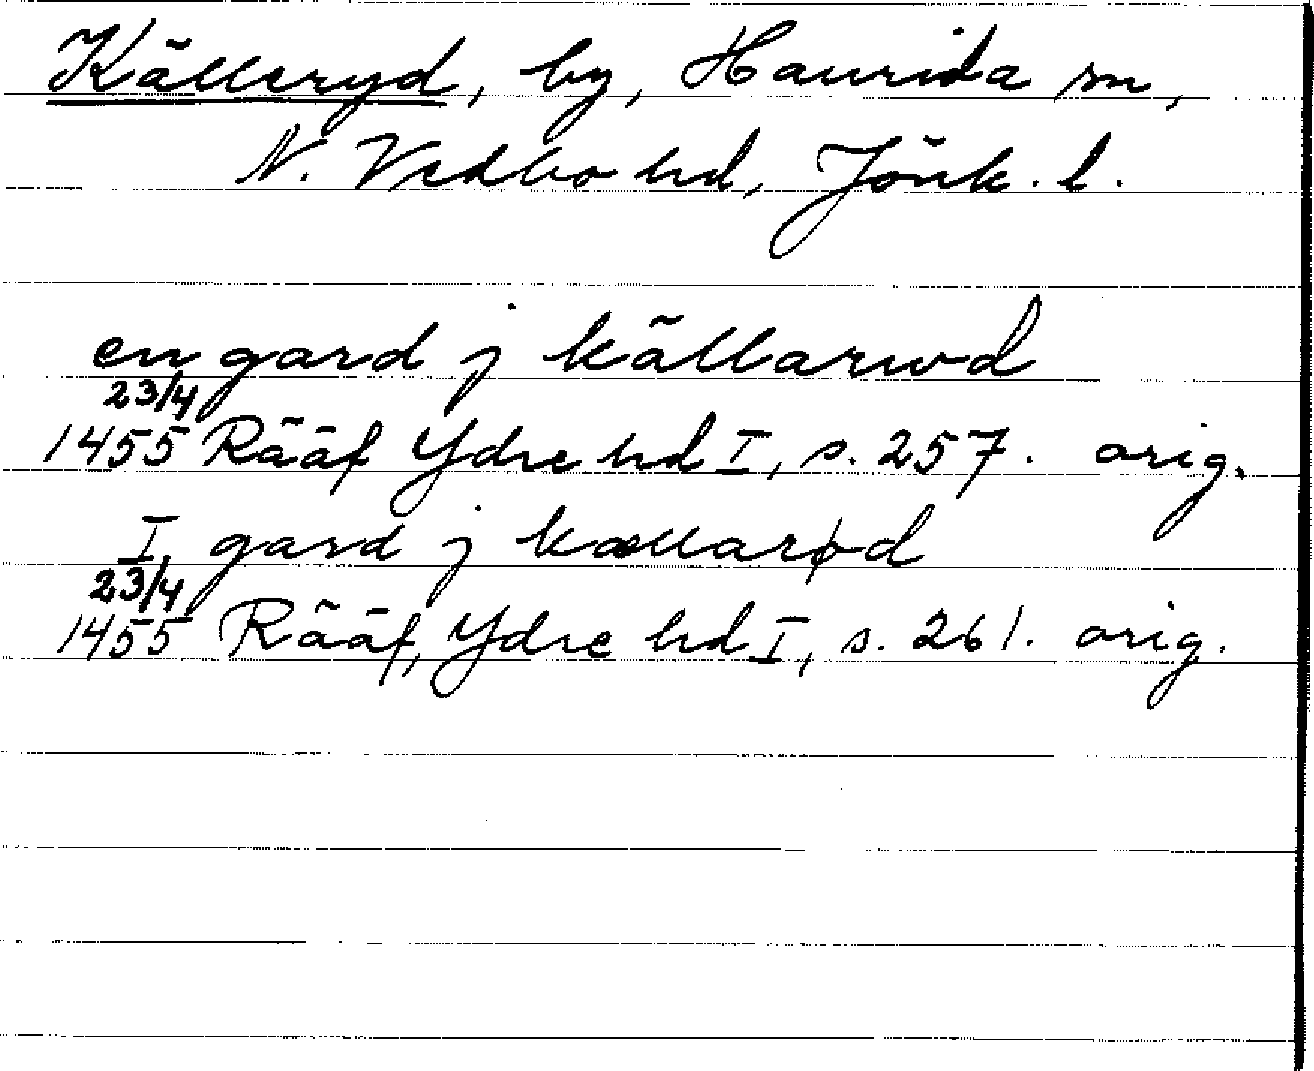 Källeryd, by, Haurida sn,
N. Vedbo hd, Jönk. l.
en gard j källarwd
23/4
1455 Rääf Ydre hd I, s. 257. orig.
I gard j kællarød
23/4
1455 Rääf, Ydre hd I, s. 261. orig.